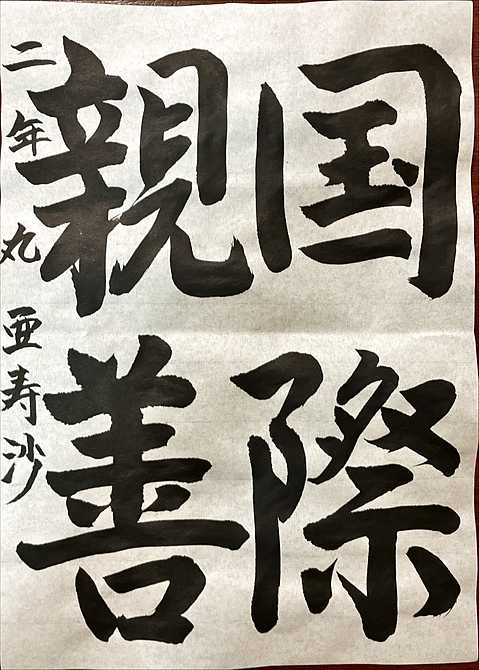 国際
親善
二年 丸 亜寿沙